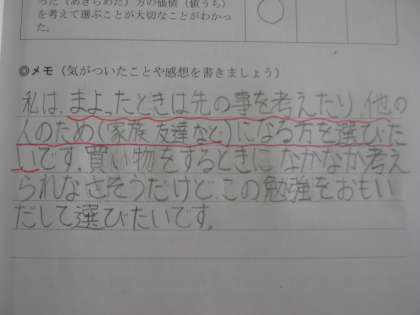 った（あきらめた）方の価値（値うち）
を考えて選ぶことが大切なことがわかっ
た。
◎メモ（気がついたことや感想を書きましょう）
私は、まよったときは先の事を考えたり、他の
人のため(家族、友達など)になる方を選びた
いです。買い物をするときに、なかなか考え
られなさそうだけど、この勉強をおもい
だして選びたいです。